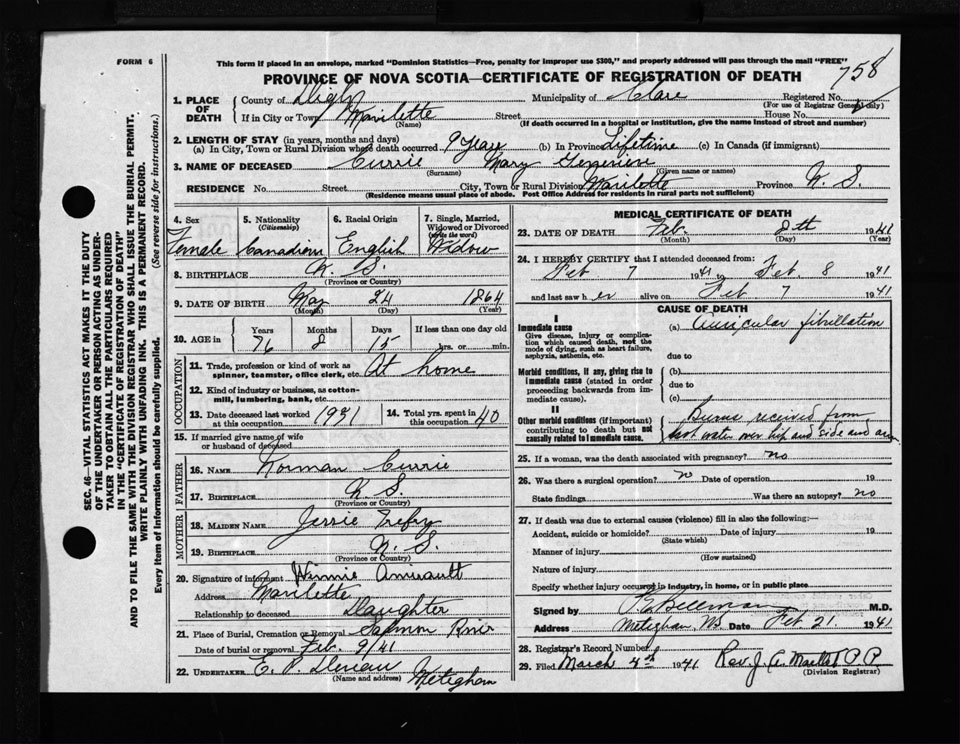 FORM 6
This form if placed in an envelope, marked "Dominion Statistics—Free, penalty for improper use $300," and properly addressed will pass through the mail "FREE"
PROVINCE OF NOVA SCOTIA—CERTIFICATE OF REGISTRATION OF DEATH
758
1. PLACE OF DEATH
County of Digby Municipality of Clare Registered No.
(For use of Registrar General only)
If in City or Town Marilette Street House No.
(Name) (If death occurred in a hospital or institution, give the name instead of street and number)
2. LENGTH OF STAY (in years, months and days)
(a) In City, Town or Rural Division where death occurred 9 years (b) In Province Lifetime (c) In Canada (if immigrant)
3. NAME OF DECEASED Currie Mary
(Surname) (Given name or names)
RESIDENCE No. Street City, Town or Rural Division Marilette Province N. S.
(Residence means usual place of abode. Post Office Address for residents in rural parts not sufficient)
4. Sex 5. Nationality (Citizenship) 6. Racial Origin 7. Single, Married, Widowed or Divorced (write the word)
Female Canadian English Widow
8. BIRTHPLACE N. S.
(Province or Country)
9. DATE OF BIRTH May 24 1864
(Month) (Day) (Year)
10. AGE in Years Months Days If less than one day old
76 8 15 hrs. or min.
OCCUPATION
11. Trade, profession or kind of work as spinner, teamster, office clerk, etc. At home
12. Kind of industry or business, as cotton-mill, lumbering, bank, etc.
13. Date deceased last worked at this occupation 1931 14. Total yrs. spent in this occupation 40
15. If married give name of wife or husband of deceased
FATHER
16. NAME Norman Currie
17. BIRTHPLACE N. S.
(Province or Country)
MOTHER
18. MAIDEN NAME Jessie Trefry
19. BIRTHPLACE N. S.
(Province or Country)
20. Signature of informant Winnie Amirault
Address Marilette
Relationship to deceased Daughter
21. Place of Burial, Cremation or Removal Salmon River
Date of burial or removal Feb. 9/41
22. UNDERTAKER E. P. Meteghan
(Name and address)
MEDICAL CERTIFICATE OF DEATH
23. DATE OF DEATH Feb. 8th 1941
(Month) (Day) (Year)
24. I HEREBY CERTIFY that I attended deceased from:
Feb 7 1941 to Feb. 8 1941
and last saw her alive on Feb 7 1941
CAUSE OF DEATH
I
Immediate cause (a) Auricular fibrillation
Give disease, injury or complication which caused death, not the mode of dying, such as heart failure, asphyxia, asthenia, etc.
due to
Morbid conditions, if any, giving rise to immediate cause (stated in order proceeding backwards from immediate cause).
(b)
due to
(c)
II
Other morbid conditions (if important) contributing to death but not causally related to immediate cause.
Burns received from
hot water over hip and side and arm
25. If a woman, was the death associated with pregnancy? no
26. Was there a surgical operation? no Date of operation 19
State findings Was there an autopsy? no
27. If death was due to external causes (violence) fill in also the following:—
Accident, suicide or homicide? Date of injury 19
(State which)
Manner of injury
(How sustained)
Nature of injury
Specify whether injury occurred in industry, in home, or in public place
Signed by P. E. Belliveau M.D.
Address Meteghan, NS Date Feb 21 1941
28. Registrar's Record Number
29. Filed March 4th 1941 Rev. J. A. Maillet P. P.
(Division Registrar)
SEC. 46— VITAL STATISTICS ACT MAKES IT THE DUTY
OF THE UNDERTAKER OR PERSON ACTING AS UNDER-
TAKER TO OBTAIN ALL THE PARTICULARS REQUIRED
IN THE "CERTIFICATE OF REGISTRATION OF DEATH"
AND TO FILE THE SAME WITH THE DIVISION REGISTRAR WHO SHALL ISSUE THE BURIAL PERMIT.
WRITE PLAINLY WITH UNFADING INK. THIS IS A PERMANENT RECORD.
Every item of information should be carefully supplied. (See reverse side for instructions.)